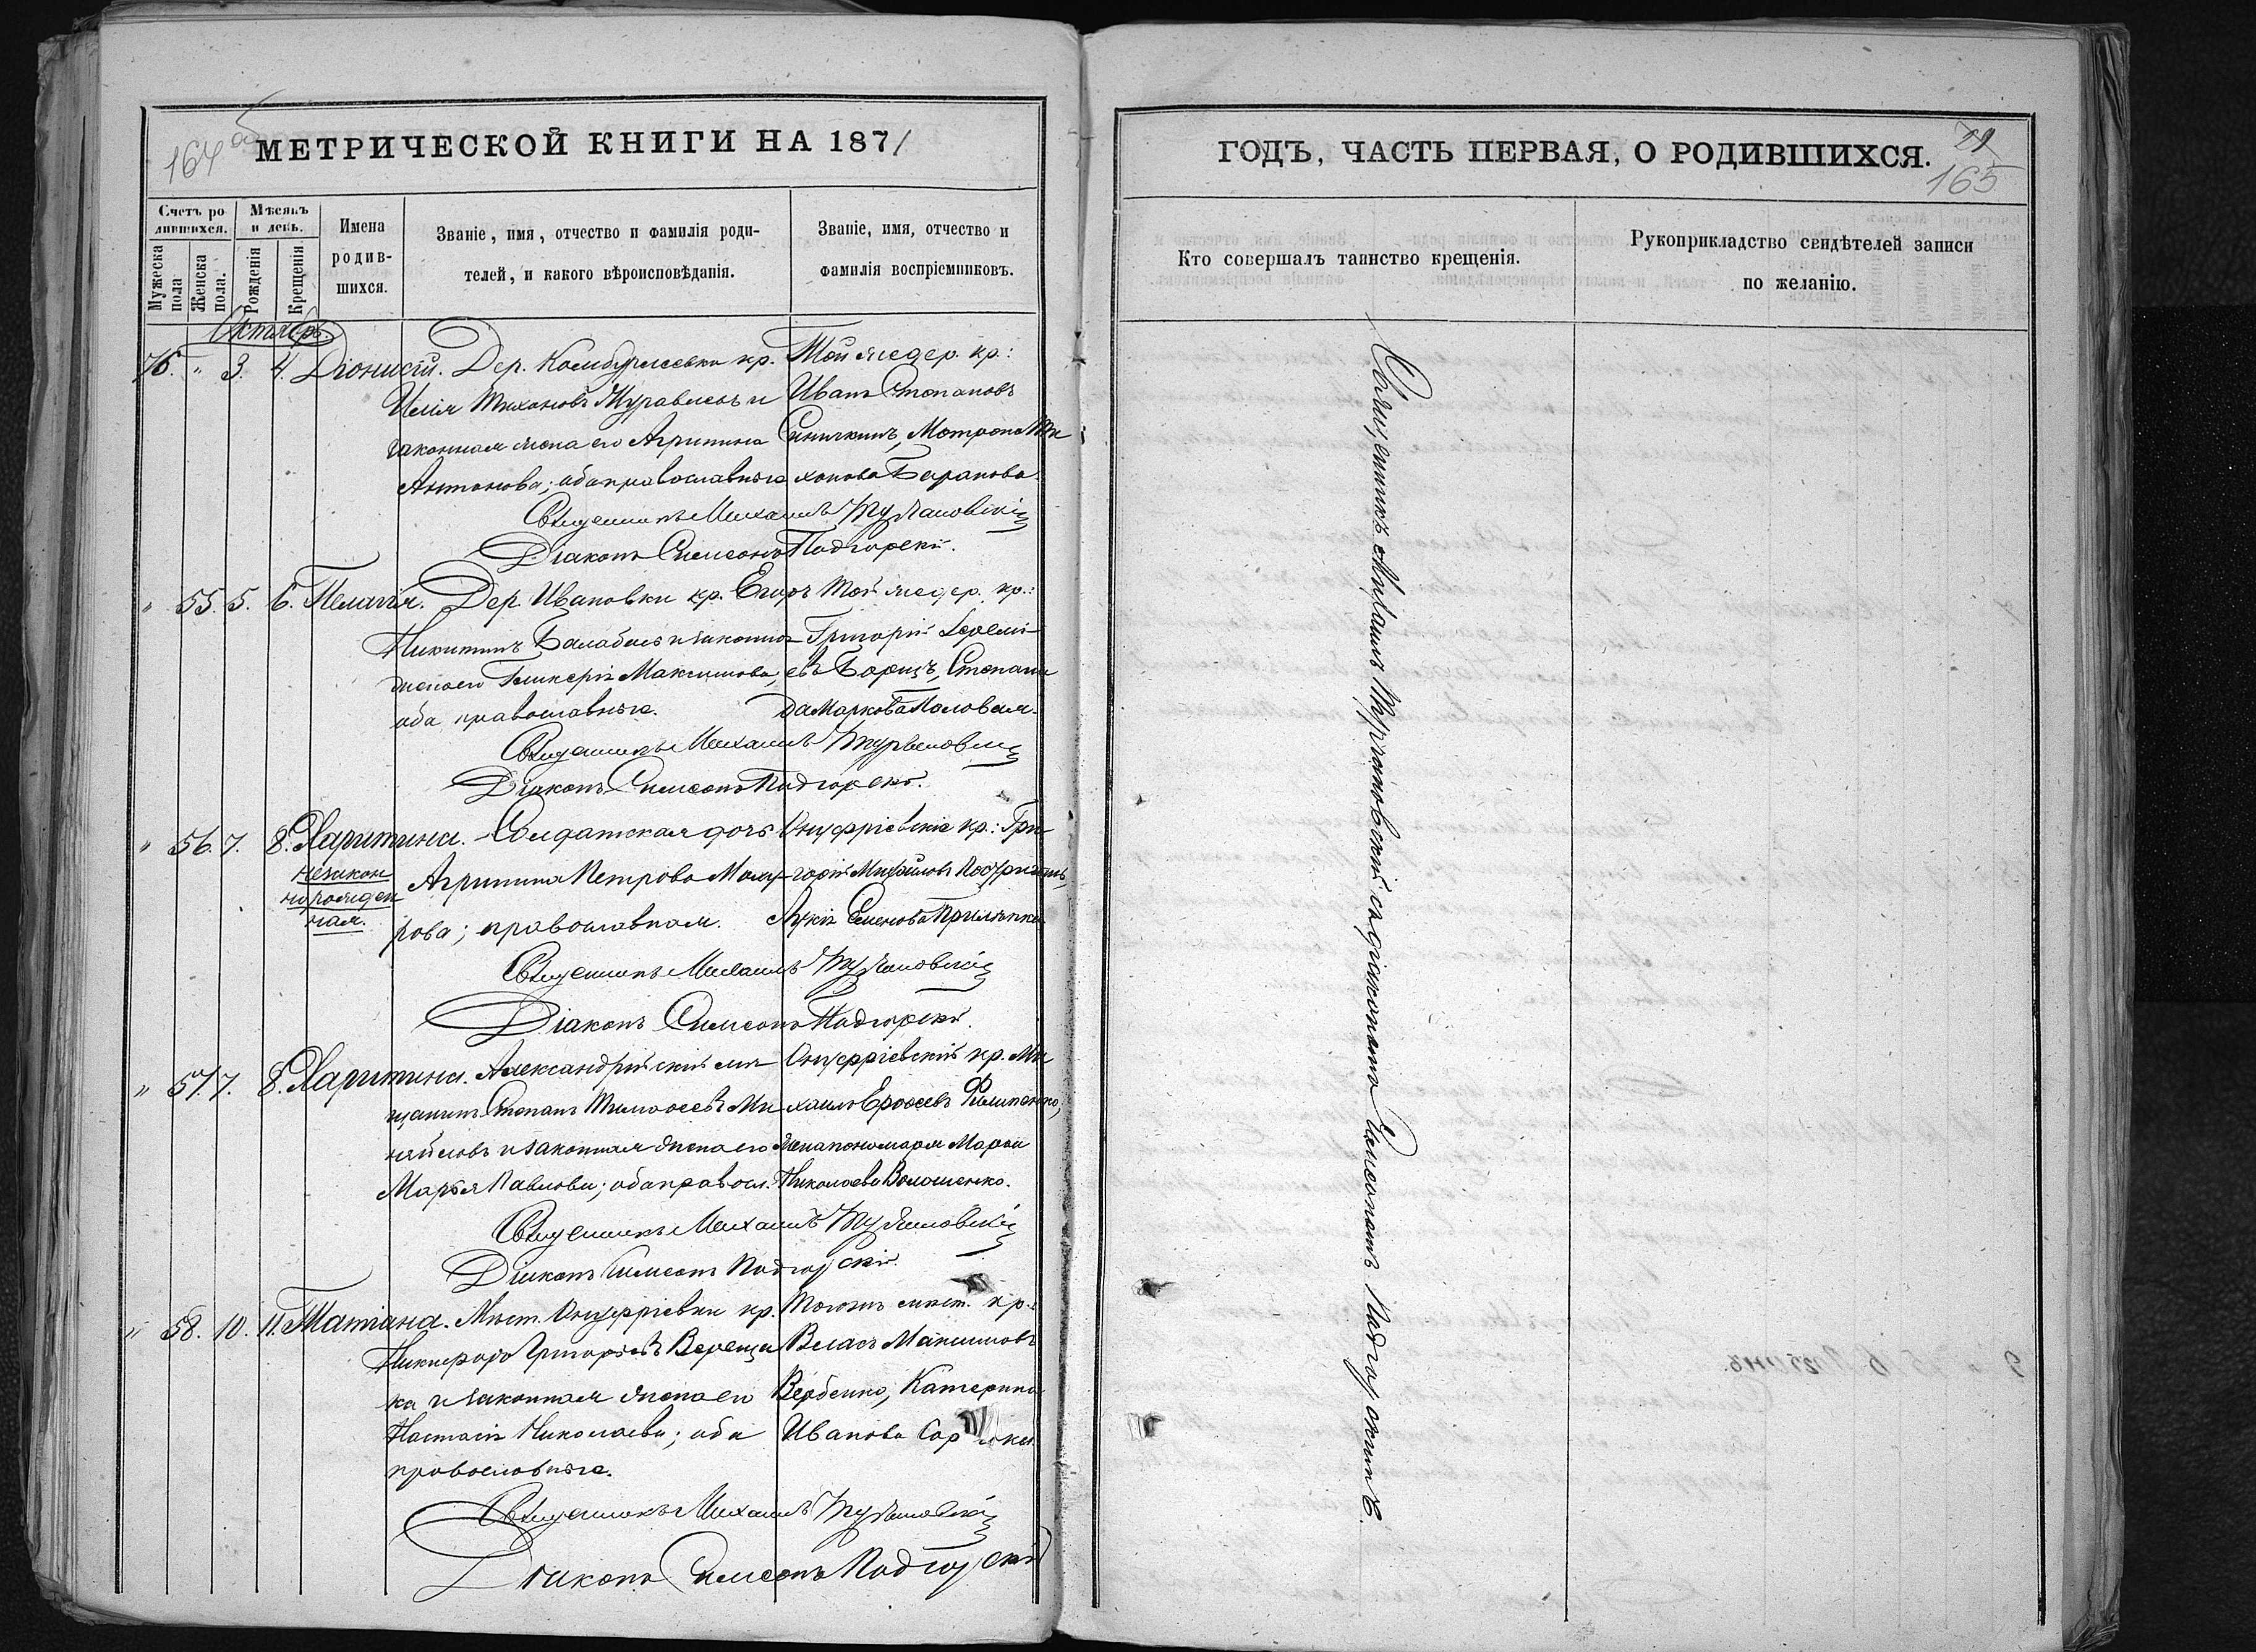 164 об
МЕТРИЧЕСКОЙ КНИГИ НА 1871
Счетъ родившихся.
Мѣсяцъ и день.
Мужеска пола
Женска пола.
Рожденія
Крещенія
Имена родившихся.
Званіе, имя, отчество и фамилія родителей, и какого вѣроисповѣданія.
Званіе, имя, отчество и фамилія воспріемниковъ.
Октябрь
76. " 3. 4. Діонисій. Дер. кр. Той же дер. кр:
Илія Тихоновъ Журавлевъ и Иванъ Степановъ
законная жена его Агрипина Синичкинъ, Матрона Ти
Антонова; оба православные хонова Баранова.
Священникъ Михаилъ
Діаконъ Симеонъ Подгорскій.
" 55. 5. 6. Пелагія. Дер. Ивановки кр. Егоръ Той же дер. кр.:
Никитинъ Балабасъ и законная Григорій Іереми-
жена его Гликерія Максимова; евъ Борищъ, Степани
оба православные. да Маркова Половая.
Священникъ Михаилъ
Діаконъ Симеонъ Подгорскій.
" 56. 7. 8. Харитина. Солдатская дочь Онуфріевскіе кр.: Гри-
незакон Агрипина Петрова Мака- горій Михайловъ
норожден рова; православная. Лукія Семенова
ная.
Священникъ Михаилъ
Діаконъ Симеонъ Подгорскій.
" 57. 7. 8. Харитина. Александрійскій мѣ- Онуфріевскій кр. Ми
щанинъ Степанъ Тимофеевъ Ми- хаилъ Ерофеевъ Филипенко,
хайловъ и законная жена его жена пономаря Марфа
Марья Павлова; оба правосл. Николаева Волошенко.
Священникъ Михаилъ
Діаконъ Симеонъ Подгорскій.
" 58. 10. 11. Татіана. Мѣст. Онуфріевки кр. Тогожъ мѣст. кр.:
Никифоръ Григорьевъ Верещa Власъ Максимовъ
ка и законная жена его Вербенко, Катерина
Настасія Николаева; оба Иванова
православные.
Священникъ Михаилъ
Діаконъ Симеонъ Подгорскій
ГОДЪ, ЧАСТЬ ПЕРВАЯ, О РОДИВШИХСЯ.
79
165
Кто совершалъ таинство крещенія.
Рукоприкладство свидѣтелей записи
по желанію.
Священникъ Михаилъ съ діакономъ Симеономъ Подгорскимъ.